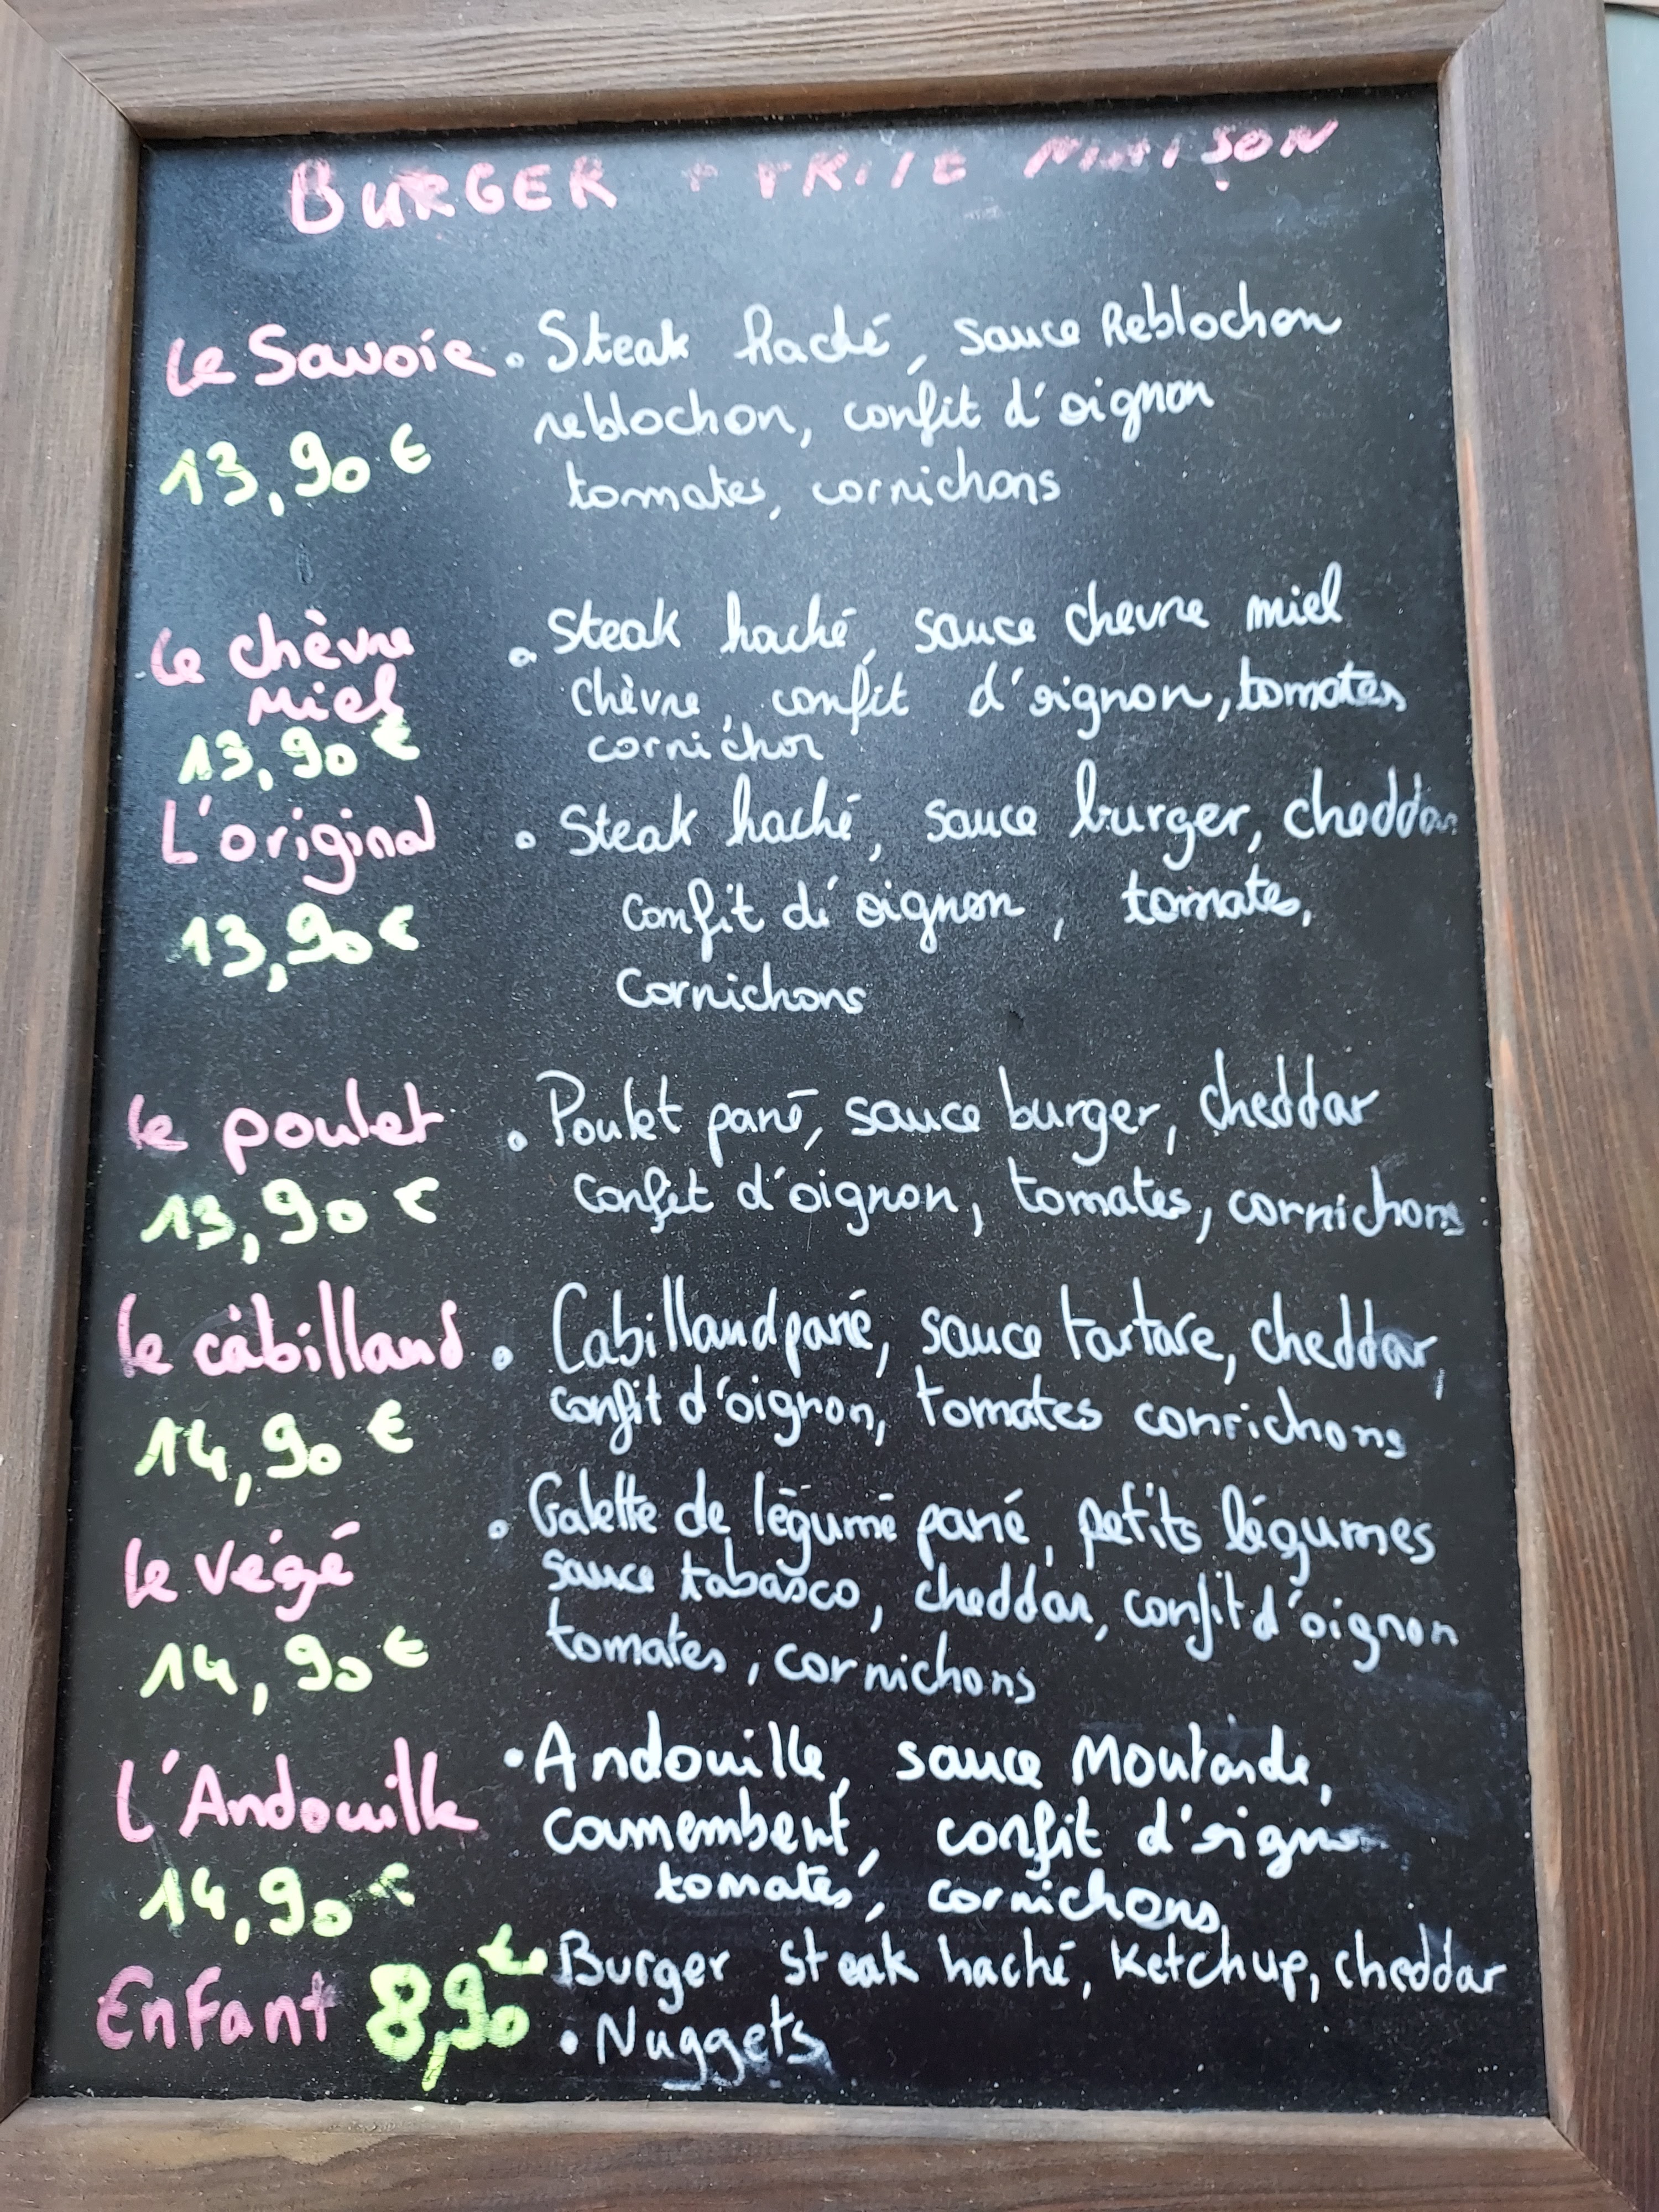 BURGER + FRITE MAISON
Le Savoie • Steak haché, sauce Reblochon
reblochon, confit d'oignon
13,90 €
tomates, cornichons
Le chèvre • Steak haché, sauce chevre miel
Miel chèvre, confit d'oignon, tomates
13,90 € cornichon
L'original • Steak haché, sauce burger, cheddar
13,90 € confit d'oignon, tomates,
Cornichons
Le poulet • Poulet pané, sauce burger, cheddar
13,90 € Confit d'oignon, tomates, cornichons
Le cabillaud • Cabillaud pané, sauce tartare, cheddar,
14,90 € confit d'oignon, tomates conrichons
• Galette de légume pané, petits légumes
Le végé sauce tabasco, cheddar, confit d'oignon
14,90 € tomates, cornichons
L'Andouille • Andouille, sauce Moutarde,
camembert, confit d'oignon
14,90 € tomates, cornichons
Enfant 8,90 € • Burger steak haché, Ketchup, cheddar
• Nuggets